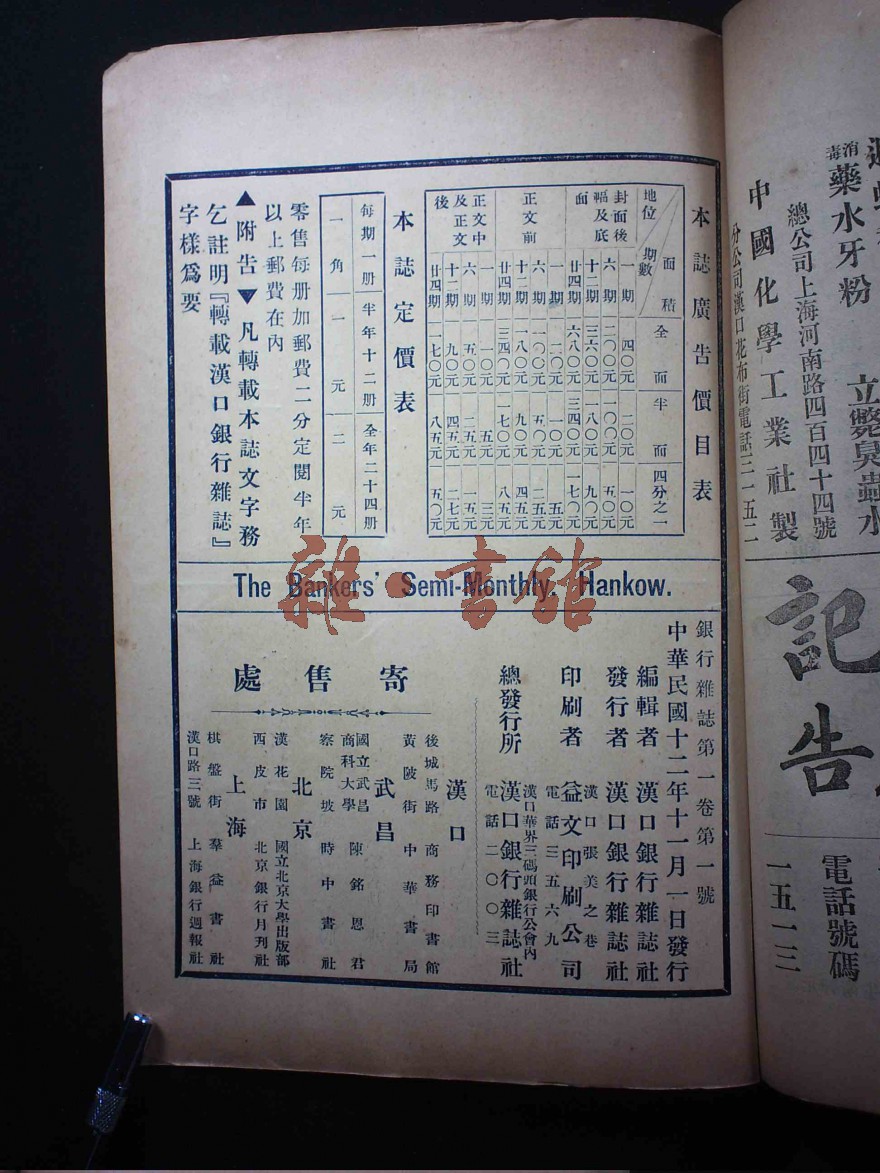 本誌廣告價目表
地位 期數 面積 全面 半面 四分之一
封面後幅及底面
一期 四〇元 二〇元 一〇元
六期 二〇〇元 一〇〇元 五〇元
十二期 三六〇元 一八〇元 九〇元
廿四期 六八〇元 三四〇元 一七〇元
正文前
一期 二〇元 一〇元 五元
六期 一〇〇元 五〇元 二五元
十二期 一八〇元 九〇元 四五元
廿四期 三四〇元 一七〇元 八五元
正文中及正文後
一期 一〇元 五元 三元
六期 五〇元 二五元 一五元
十二期 九〇元 四五元 二七元
廿四期 一七〇元 八五元 五〇元
本誌定價表
每期一册 半年十二册 全年二十四册
一角 一元 二元
零售每册加郵費二分定閱半年
以上郵費在內
▲附告▼凡轉載本誌文字務
乞註明『轉載漢口銀行雜誌』
字樣爲要
The Bankers' Semi-Monthly, Hankow.
銀行雜誌第一卷第一號
中華民國十二年十一月一日發行
編輯者 漢口銀行雜誌社
發行者 漢口銀行雜誌社
漢口張美之巷
印刷者 益文印刷公司
電話三五六九
漢口華界三碼頭銀行公會內
總發行所 漢口銀行雜誌社
電話二〇〇三
寄售處
漢口
後城馬路 商務印書館
黃陂街 中華書局
武昌
國立武昌商科大學 陳銘恩君
察院坡 時中書社
北京
漢花園 國立北京大學出版部
西皮市 北京銀行月刊社
上海
棋盤街 羣益書社
漢口路三號 上海銀行週報社
雜·書館
消毒藥水牙粉
立斃臭蟲水
總公司上海河南路四百四十四號
中國化學工業社製
分公司漢口花布街電話三一五二
記
告
電話號碼
一五一三